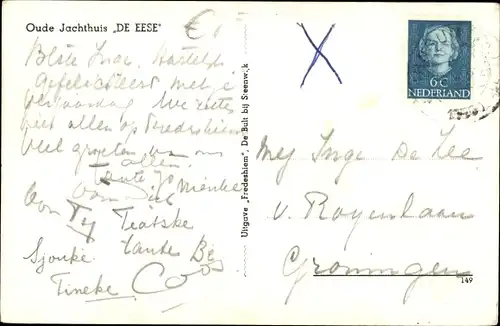 Oude Jachthuis „DE EESE"
Beste Inge. Hartelijk
gefeliciteerd met je
verjaardag. We zitten
hier allen op Fredeshiem
Veel groeten van ons
allen.
Tante
Nienke
Oom
Tj Teatske
Sjouke tante Be
Tineke Co
Uitgave „Fredeshiem", De Bult bij Steenwijk
6 C
NEDERLAND
Mej Inge De Zee
v. Royenlaan
Groningen
149